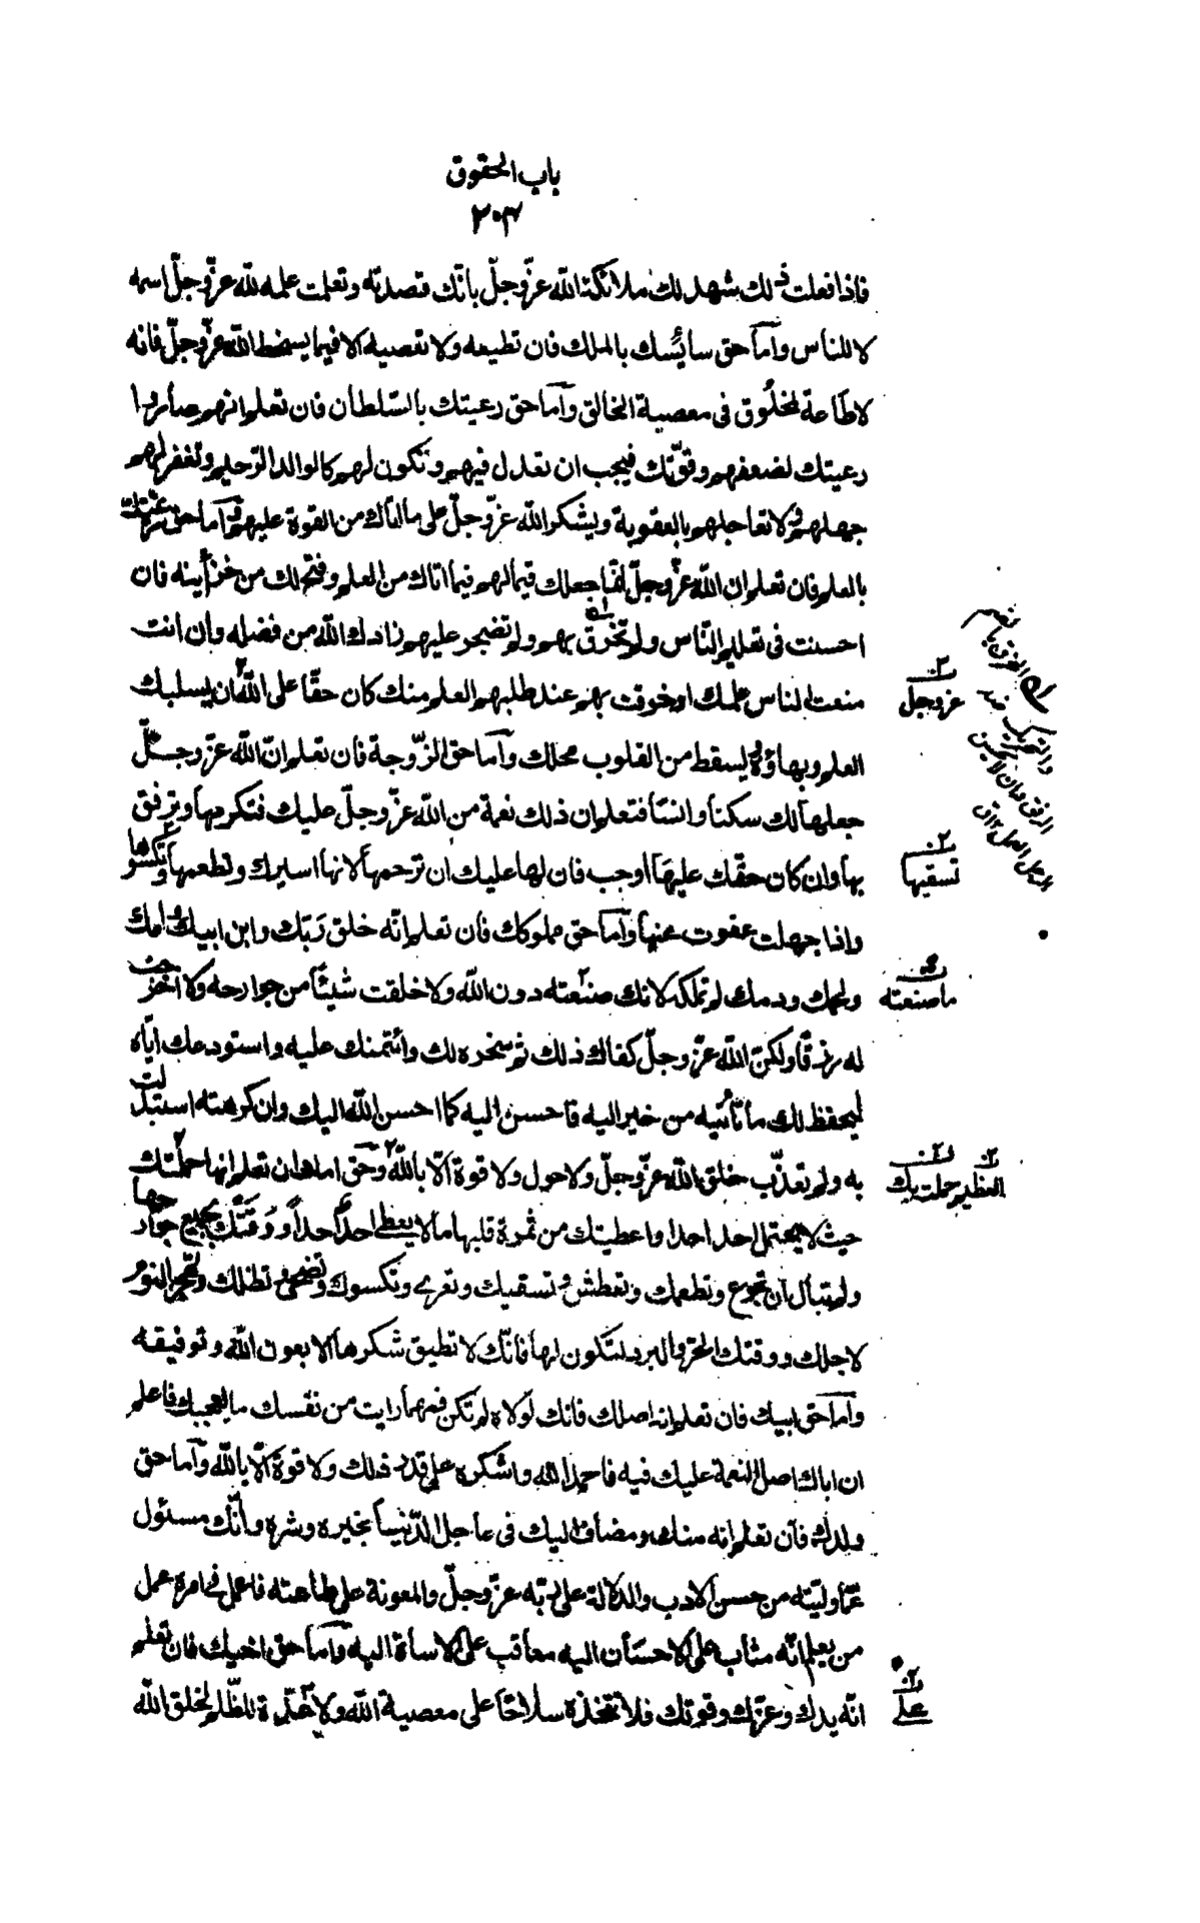 باب الحقوق
٢٠٣
فاذا فعلت ذلك شهد لك ملائكة الله عزّ وجلّ بانّك قصدته وتعلمت علمه لله عزّ وجلّ اسمه
لا للناس وأمّا حق سائسك بالملك فان تطيعه ولا تعصيه الا فيما يسخط الله عزّ وجلّ فانه
لا طاعة لمخلوق فى معصية الخالق وأما حق رعيتك بالسّلطان فان تعلم انهم صاروا
رعيتك لضعفهم وقوّتك فيجب ان تعدل فيهم وتكون لهم كالوالد الرّحيم وتغفر لهم
جهلهم ولا تعاجلهم بالعقوبة ويشكر الله عزّ وجلّ على ما اتاك من القوة عليهم وأما حق رعيّتك
بالعلم فان تعلم ان الله عزّ وجلّ انما جعلك قيما لهم فيما اتاك من العلم وفتح لك من خزائنه فان
احسنت فى تعليم النّاس ولم تخرق بهم ولم تضجر عليهم زادك الله من فضله وان انت
منعت الناس علمك او خرقت بهم عند طلبهم العلم منك كان حقّا على الله ان يسلبك
العلم وبهاؤه ويسقط من القلوب محلك وأما حق الزّوجة فان تعلم انّ الله عزّ وجلّ
جعلها لك سكنا وانسا فتعلم ان ذلك نعمة من الله عزّ وجلّ عليك فتكرمها وترفق
بها وان كان حقّك عليها اوجب فان لها عليك ان ترحمها لانها اسيرك وتطعمها وتكسوها
واذا جهلت عفوت عنها وأمّا حق مملوكك فان تعلم انّه خلق ربّك وابن ابيك وامك
ولحمك ودمك لم تملكه لانك صنعته دون الله ولا خلقت شيئا من جوارحه ولا اخرجت
له رزقا ولكنّ الله عزّ وجلّ كفاك ذلك ثم سخره لك وائتمنك عليه واستودعك ايّاه
ليحفظ لك ما تأتيه من خير اليه فاحسن اليه كما احسن الله اليك وان كرهته استبدلت
به ولم تعذّب خلق الله عزّ وجلّ ولا حول ولا قوة الّا بالله وحق امك ان تعلم انها حملتك
حيث لا يحتمل احد احدا واعطتك من ثمرة قلبها ما لا يعطى احد احدا ووقتك بجميع جوارحها
ولم تبال ان تجوع وتطعمك وتعطش وتسقيك وتعرى وتكسوك وتضحى وتظلك وتهجر النوم
لاجلك ووقتك الحرّ والبرد لتكون لها فانّك لا تطيق شكرها الا بعون الله وتوفيقه
وأما حق ابيك فان تعلم انه اصلك فانك لولاه لم تكن فمهما رايت من نفسك ما يعجبك فاعلم
ان اباك اصل النعمة عليك فيه فاحمد الله واشكره على قدر ذلك ولا قوة الّا بالله وأما حق
ولدك فان تعلم انه منك ومضاف اليك فى عاجل الدّنيا بخيره وشره وانّك مسئول
عمّا وليته من حسن الادب والدلالة على ربّه عزّ وجلّ والمعونة على طاعته فاعمل فى امره عمل
من يعلم انّه مثاب على الاحسان اليه معاقب على الاساءة اليه وأما حق اخيك فان تعلم
انّه يدك وعزّك وقوتك فلا تتخذه سلاحا على معصية الله ولا عدّة للظّلم لخلق الله
عزّ وجل
تسقيها
ما صنعته
العظيم حملت بك
على